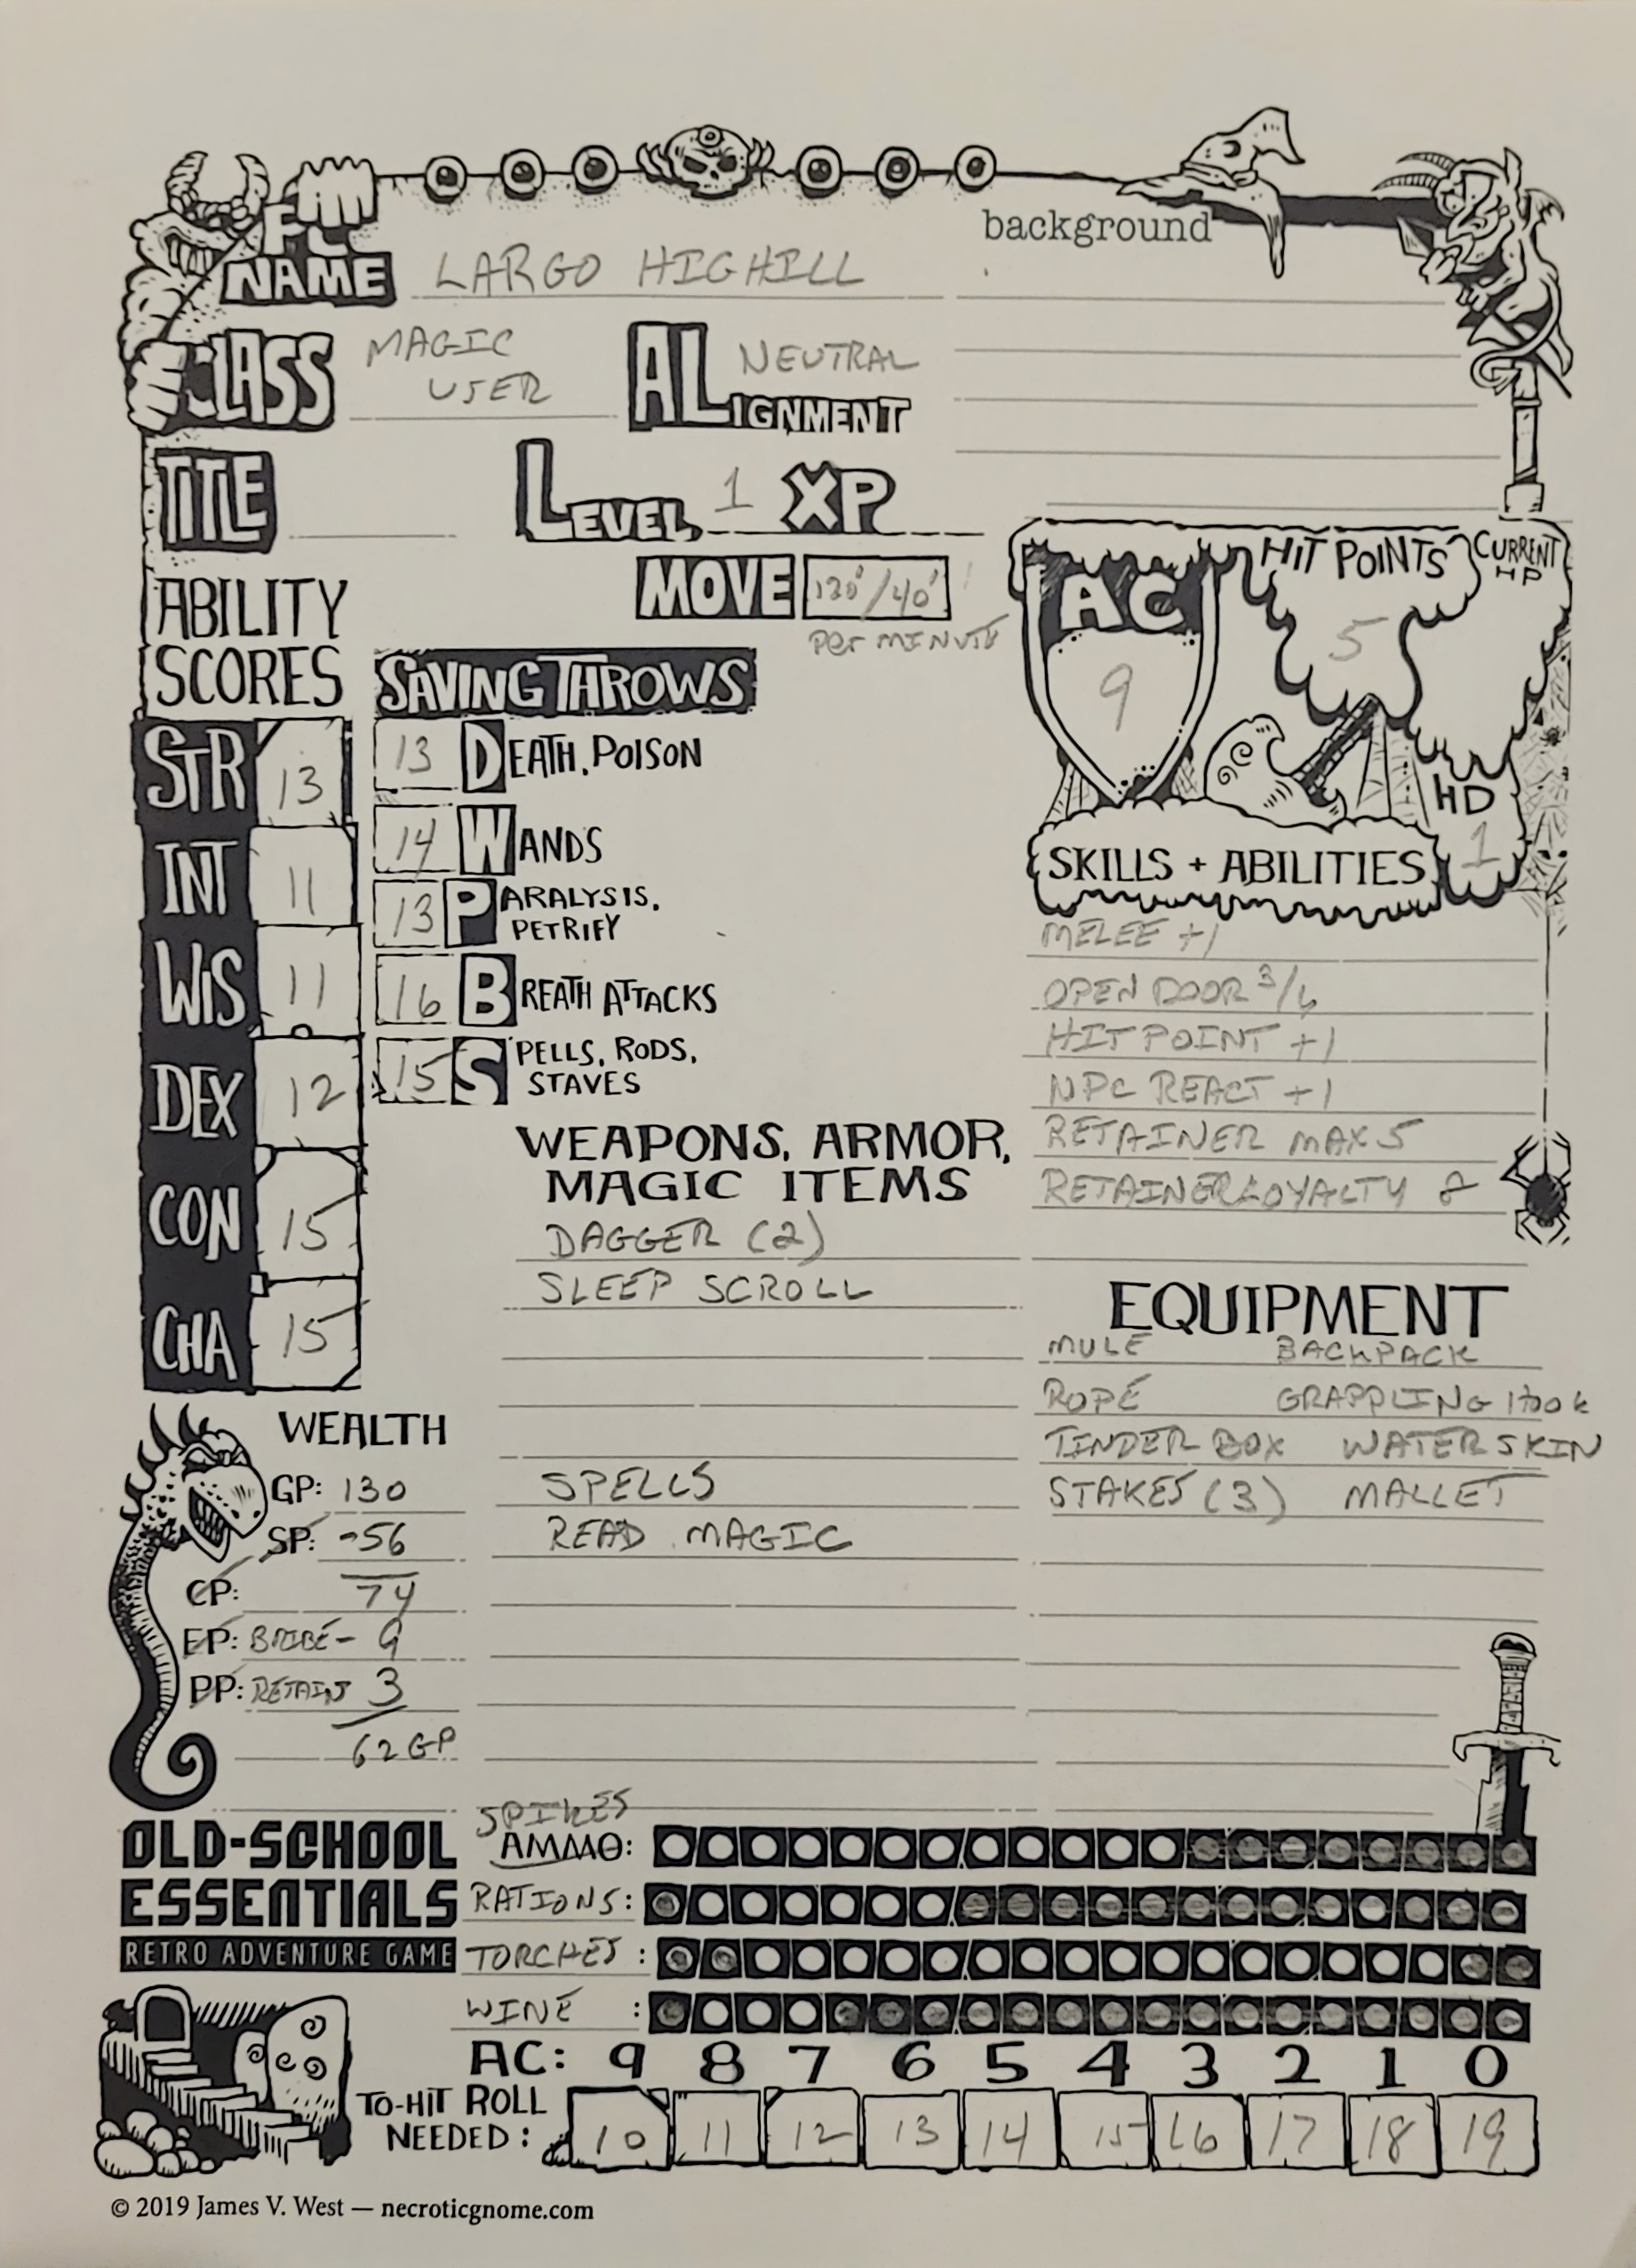 background
PC
NAME LARGO HIGHILL
CLASS MAGIC
USER
ALIGNMENT NEUTRAL
TITLE
LEVEL 1 XP
MOVE 120'/40'
PER MINUTE
AC
9
HIT POINTS
5
CURRENT
HP
HD
1
ABILITY
SCORES
STR 13
INT 11
WIS 11
DEX 12
CON 15
CHA 15
SAVING THROWS
13 DEATH, POISON
14 WANDS
13 PARALYSIS,
PETRIFY
16 BREATH ATTACKS
15 SPELLS, RODS,
STAVES
SKILLS + ABILITIES
MELEE +1
OPEN DOOR 3/6
HIT POINT +1
NPC REACT +1
RETAINER MAX 5
RETAINER LOYALTY 8
WEAPONS, ARMOR,
MAGIC ITEMS
DAGGER (2)
SLEEP SCROLL
SPELLS
READ MAGIC
EQUIPMENT
MULE BACKPACK
ROPE GRAPPLING HOOK
TINDER BOX WATERSKIN
STAKES (3) MALLET
WEALTH
GP: 130
SP: -56
CP: 74
EP: BRIBE - 9
PP: 3
62 GP
OLD-SCHOOL
ESSENTIALS
RETRO ADVENTURE GAME
SPIKES
AMMO:
RATIONS:
TORCHES:
WINE :
AC: 9 8 7 6 5 4 3 2 1 0
TO-HIT ROLL
NEEDED: 10 11 12 13 14 15 16 17 18 19
© 2019 James V. West — necroticgnome.com